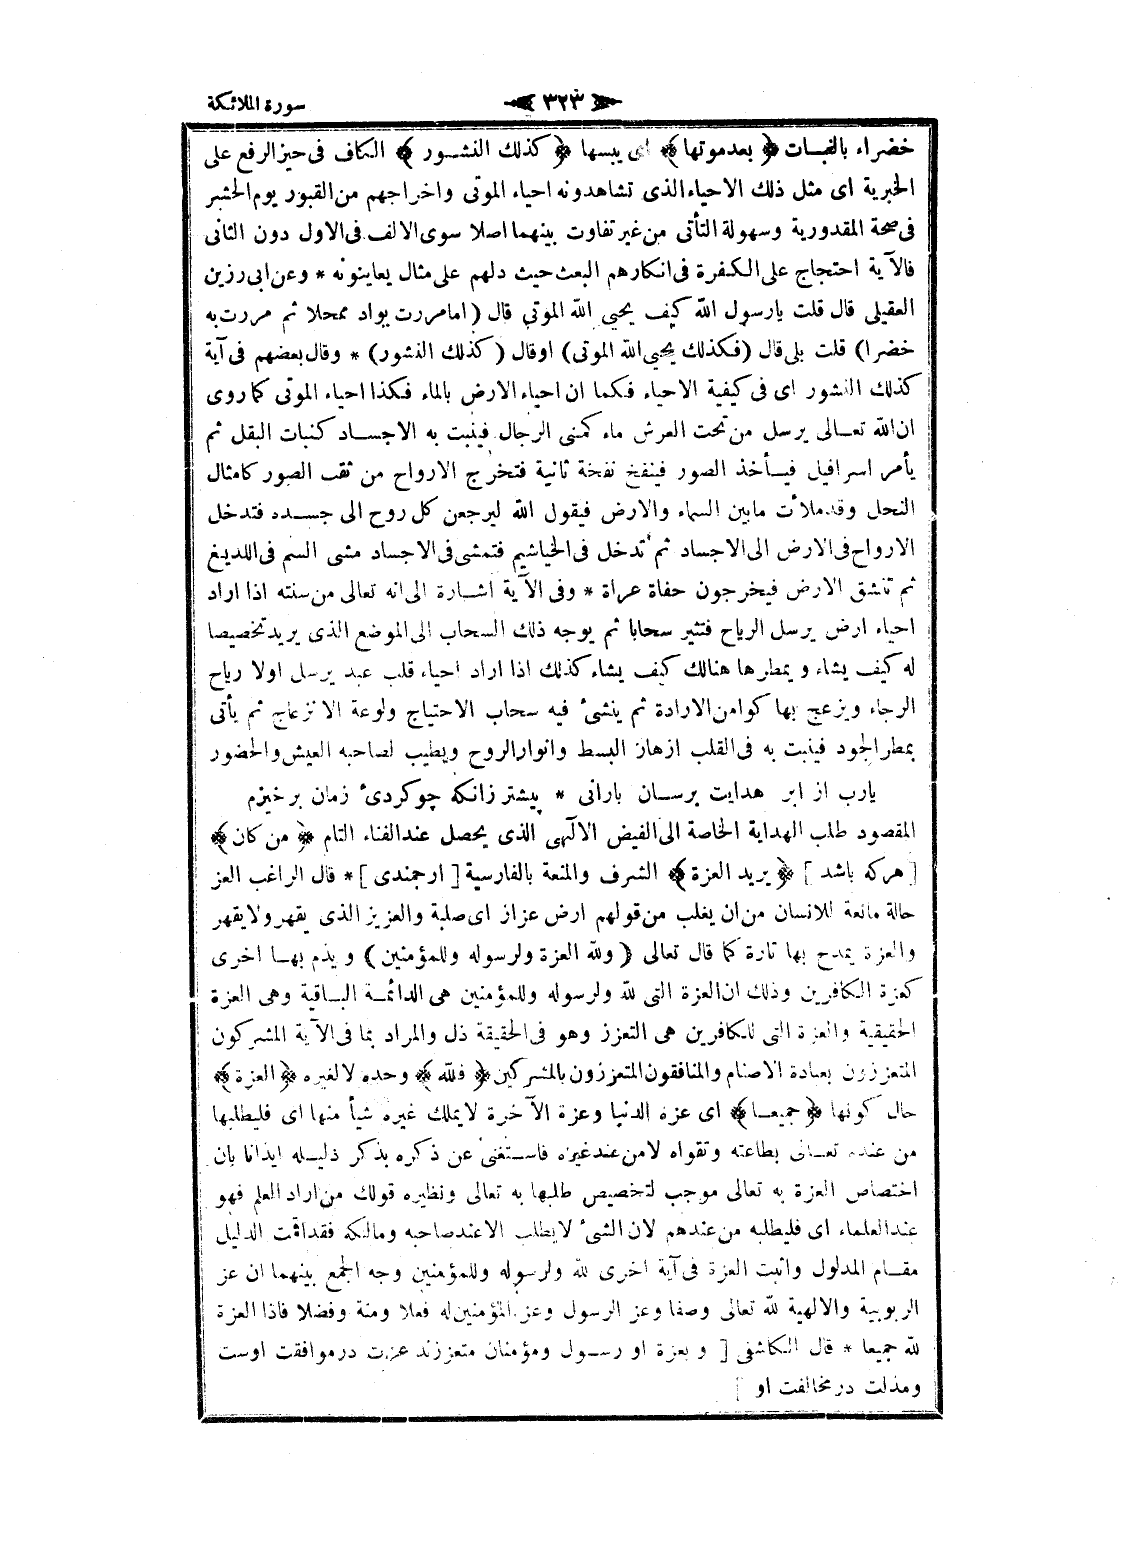 سورة الملائكة
﴿ ٣٢٣ ﴾
خضراء بالنبات ﴿ بعدموتها ﴾ اى يبسها ﴿ كذلك النشور ﴾ الكاف فى حيز الرفع على
الخبرية اى مثل ذلك الاحياء الذى تشاهدونه احياء الموتى واخراجهم من القبور يوم الحشر
فى صحة المقدورية وسهولة التأتى من غير تفاوت بينهما اصلا سوى الالف فى الاول دون الثانى
فالآية احتجاج على الكفرة فى انكارهم البعث حيث دلهم على مثال يعاينونه * وعن ابى رزين
العقيلى قال قلت يارسول الله كيف يحيى الله الموتى قال ( امامررت بواد ممحلا ثم مررت به
خضرا) قلت بلى قال (فكذلك يحيى الله الموتى) اوقال ( كذلك النشور) * وقال بعضهم فى آية
كذلك النشور اى فى كيفية الاحياء فكما ان احياء الارض بالماء فكذا احياء الموتى كما روى
ان الله تعالى يرسل من تحت العرش ماء كمنى الرجال فينبت به الاجساد كنبات البقل ثم
يأمر اسرافيل فيأخذ الصور فينفخ نفخة ثانية فتخرج الارواح من ثقب الصور كامثال
النحل وقد ملأت مابين السماء والارض فيقول الله ليرجعن كل روح الى جسده فتدخل
الارواح فى الارض الى الاجساد ثم تدخل فى الخياشيم فتمشى فى الاجساد مشى السم فى اللديغ
ثم تنشق الارض فيخرجون حفاة عراة * وفى الآية اشارة الى انه تعالى من سنته اذا اراد
احياء ارض يرسل الرياح فتثير سحابا ثم يوجه ذلك السحاب الى الموضع الذى يريد تخصيصا
له كيف يشاء و يمطرها هنالك كيف يشاء كذلك اذا اراد احياء قلب عبد يرسل اولا رياح
الرجاء ويزعج بها كوامن الارادة ثم ينشئ فيه سحاب الاحتياج ولوعة الانزعاج ثم يأتى
بمطر الجود فينبت به فى القلب ازهار البسط وانوار الروح ويطيب لصاحبه العيش والحضور
يارب از ابر هدايت برسان بارانى * پيشتر زانكه چو كردى زمان برخيزم
المقصود طلب الهداية الخاصة الى الفيض الالهى الذى يحصل عند الفناء التام ﴿ من كان ﴾
[ هركه باشد ] ﴿ يريد العزة ﴾ الشرف والمنعة بالفارسية [ ارجمندى ] * قال الراغب العز
حالة مانعة للانسان من ان يغلب من قولهم ارض عزاز اى صلبة والعزيز الذى يقهر ولا يقهر
والعزة يمدح بها تارة كما قال تعالى ( ولله العزة ولرسوله وللمؤمنين ) و يذم بها اخرى
كعزة الكافرين وذلك ان العزة التى لله ولرسوله وللمؤمنين هى الدائمة الباقية وهى العزة
الحقيقية والعزة التى للكافرين هى التعزز وهو فى الحقيقة ذل والمراد بما فى الآية المشركون
المتعززون بعبادة الاصنام والمنافقون المتعززون بالمشركين ﴿ فلله ﴾ وحده لا لغيره ﴿ العزة ﴾
حال كونها ﴿ جميعا ﴾ اى عزة الدنيا وعزة الآخرة لايملك غيره شيأ منها اى فليطلبها
من عنده تعالى بطاعته وتقواه لامن عند غيره فاستغنى عن ذكره بذكر دليله ايذانا بان
اختصاص العزة به تعالى موجب لتخصيص طلبها به تعالى ونظيره قولك من اراد العلم فهو
عند العلماء اى فليطلبه من عندهم لان الشئ لايطلب الاعند صاحبه ومالكه فقد اقمت الدليل
مقام المدلول واثبت العزة فى آية اخرى لله ولرسوله وللمؤمنين وجه الجمع بينهما ان عز
الربوبية والالهية لله تعالى وصفا وعز الرسول وعز المؤمنين له فعلا ومنة وفضلا فاذا العزة
لله جميعا * قال الكاشفى [ و بعزة او رسول ومؤمنان متعززند عزت درموافقت اوست
ومذلت در مخالفت او ]